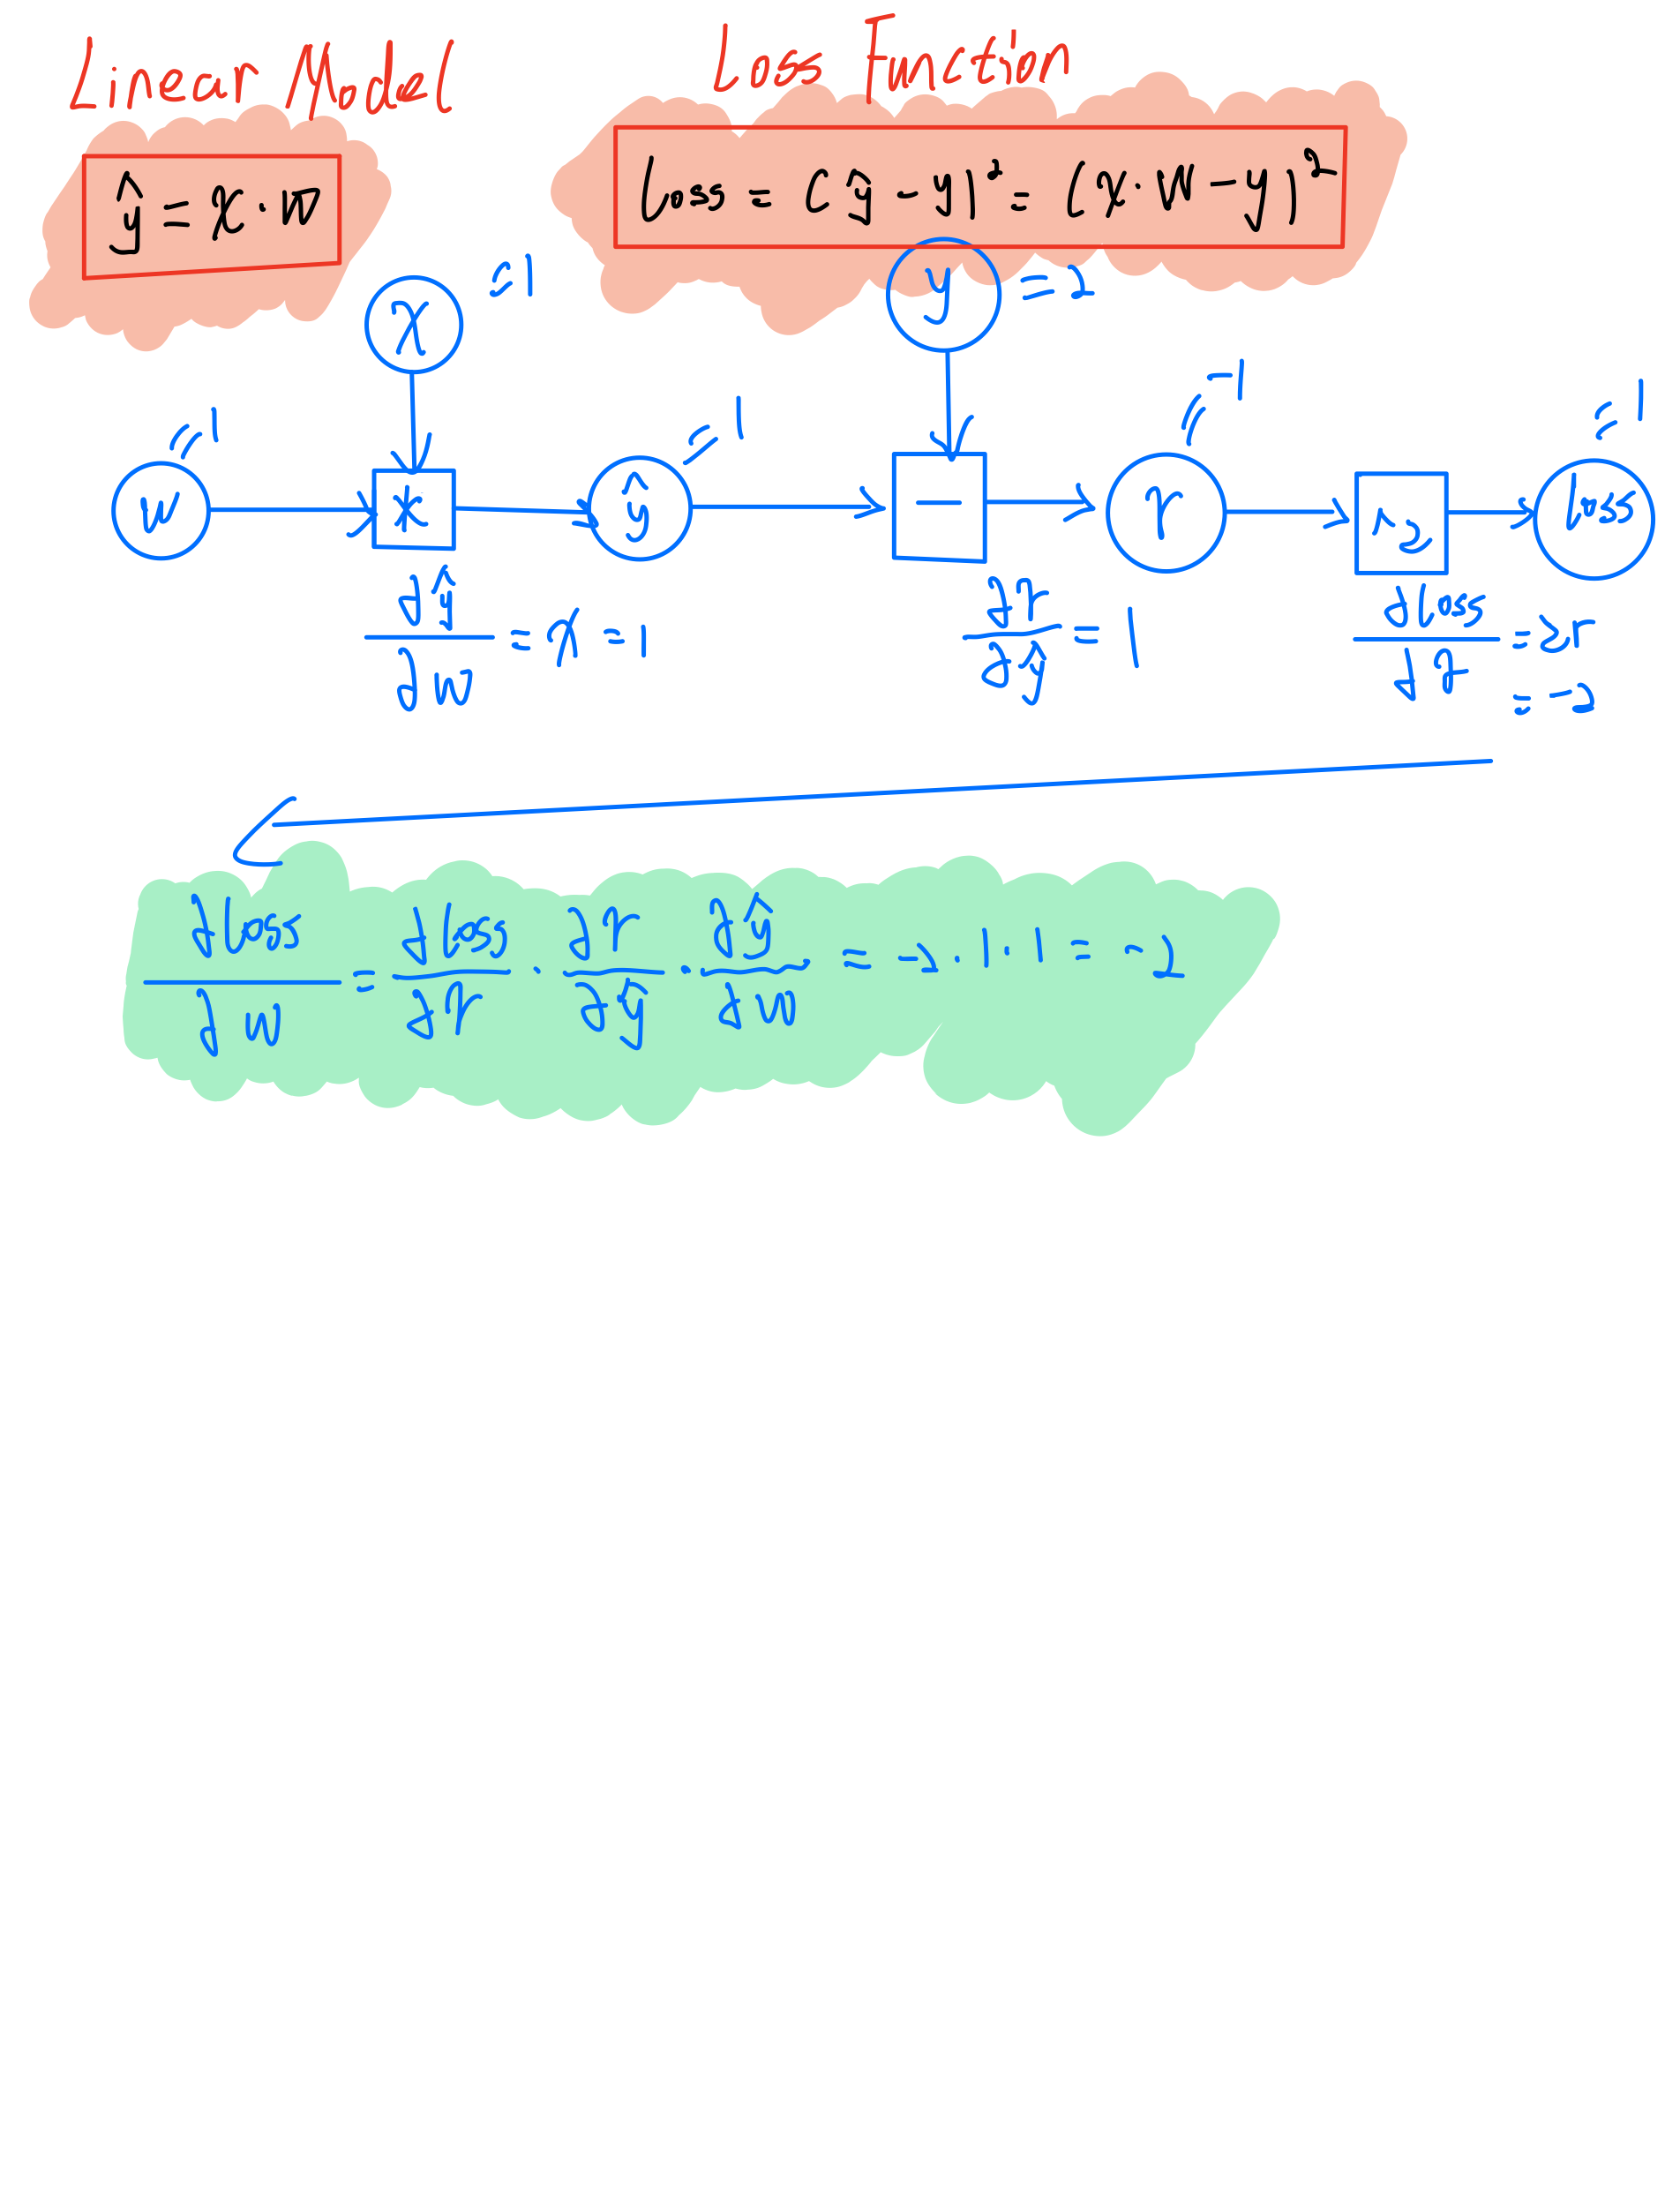 Linear Model
Loss Function
ŷ = x · w
loss = (ŷ - y)² = (x · w - y)²
x = 1
y = 2
w = 1
*
ŷ = 1
−
r = -1
^2
loss = 1
∂ŷ/∂w = x = 1
∂r/∂ŷ = 1
∂loss/∂r = 2r
= -2
∂loss/∂w = ∂loss/∂r · ∂r/∂ŷ · ∂ŷ/∂w = -2 · 1 · 1 = -2